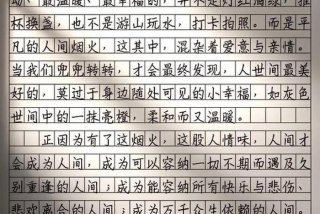 动、最温暖、最幸福的，并不是灯红酒绿，推
杯换盏，也不是游山玩水，打卡拍照。而是平
凡的人间烟火，这其中，混杂着爱意与亲情。
当我们兜兜转转，才会最终发现，人世间最美
好的，莫过于身边随处可见的小幸福，如灰色
世间中的一抹亮橙，柔和而又温暖。
正因为有了这烟火，这股人情味，人间才
会成为人间，成为可以容纳一切不期而遇及久
别重逢的人间；成为能容纳所有快乐与悲伤、
悲欢离合的人间；成为万千众生依赖的人间。